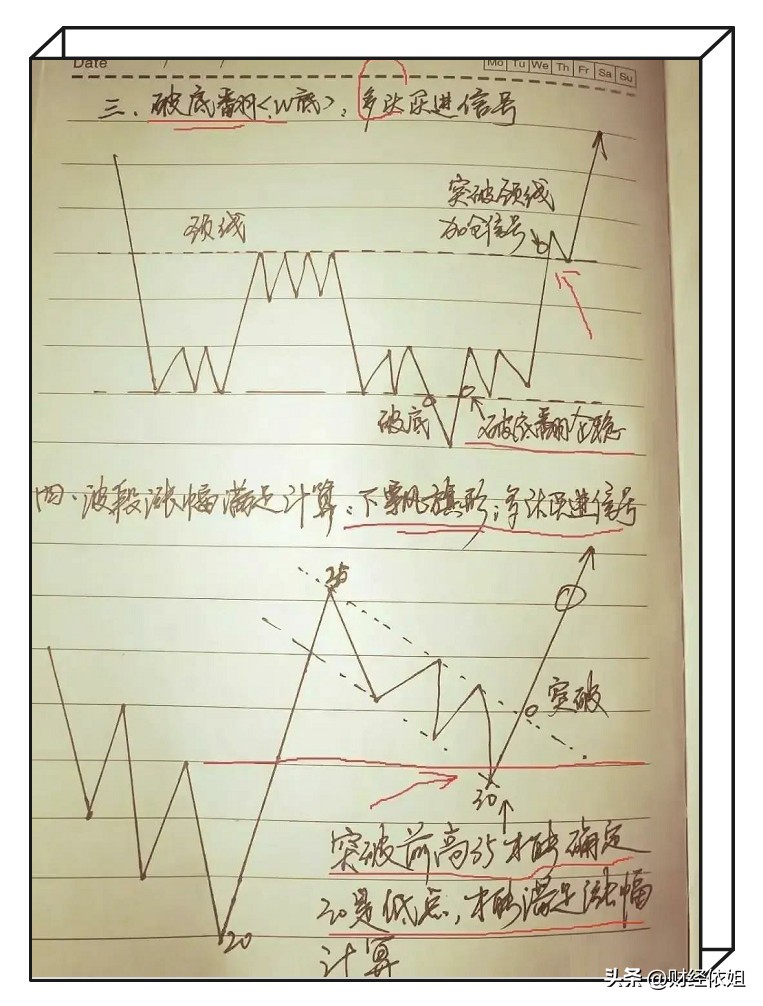 Date / /
Mo Tu We Th Fr Sa Su
三、破底翻<W底>:多头买进信号
颈线
突破颈线
加仓信号
破底
破底翻企稳
四、波段涨幅满足计算:下飘旗形:多头买进信号
35
突破
30
突破前高35才能确定
30是低点,才能满足涨幅
计算
20
头条 @财经依姐